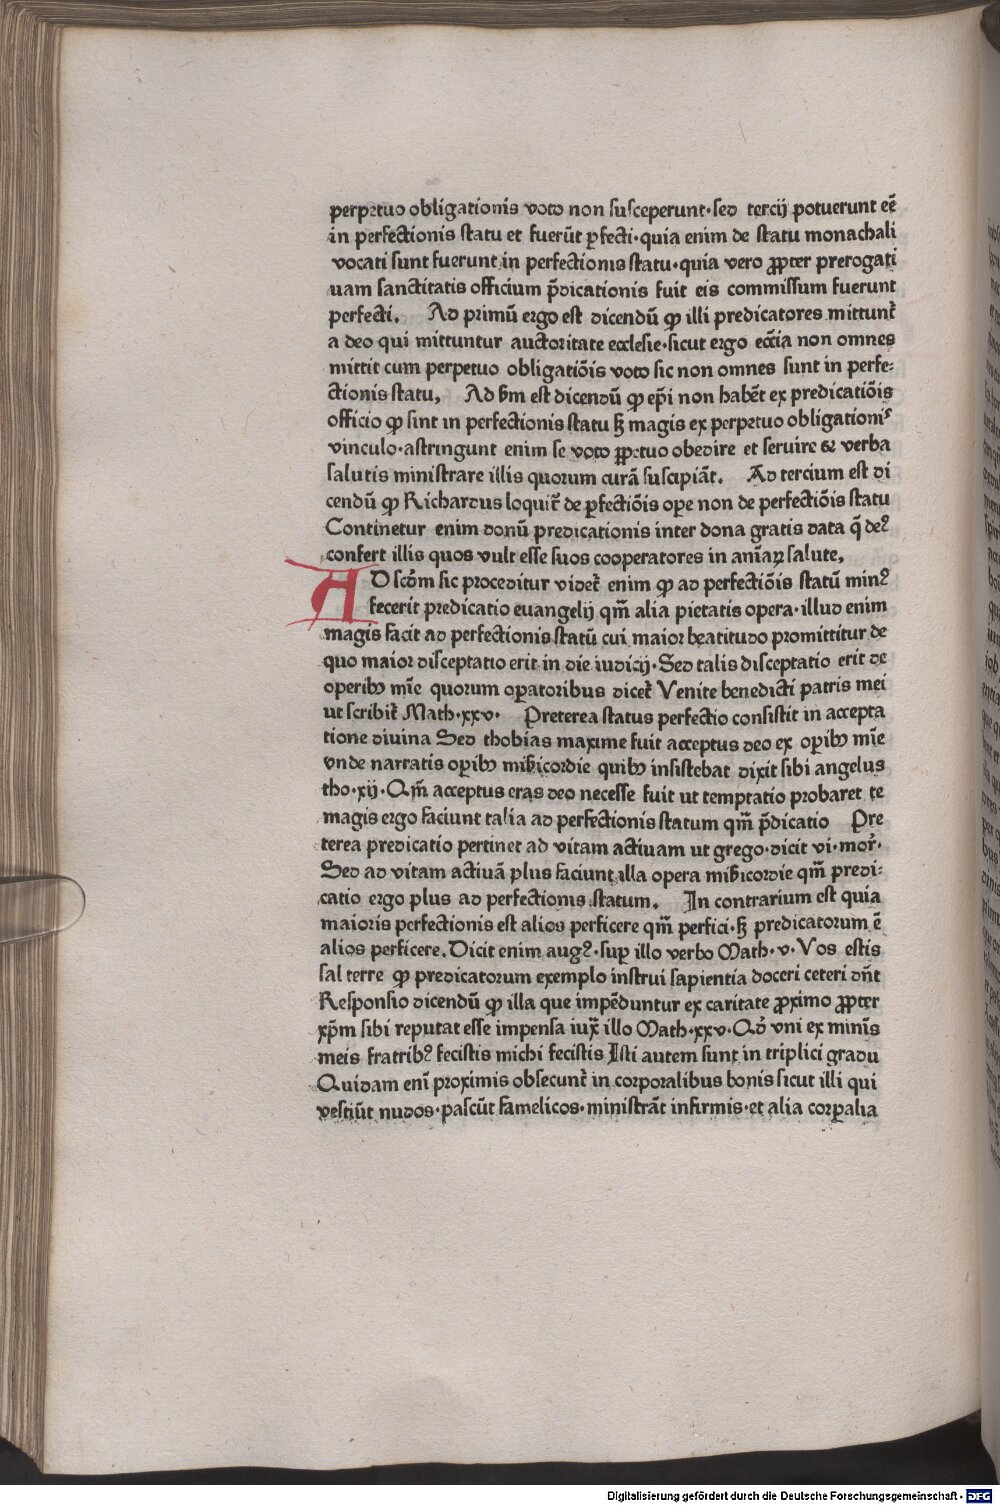 perpetuo obligationis voto non susceperunt·sed tercij potuerunt eē
in perfectionis statu et fuerūt ꝑfecti·quia enim de statu monachali
vocati sunt fuerunt in perfectionis statu·quia vero ꝓpter prerogati
uam sanctitatis officium p̄dicationis fuit eis commissum fuerunt
perfecti. Ad primū ergo est dicendū ꝙ illi predicatores mittunt̄
a deo qui mittuntur auctoritate ecclesie·sicut ergo ecc̄ia non omnes
mittit cum perpetuo obligatiōis voto sic non omnes sunt in perfe:
ctionis statu, Ad ẜm est dicendū ꝙ ep̄i non habēt ex predicatiōis
officio ꝙ sint in perfectionis statu ꝫ magis ex perpetuo obligationis
vinculo·astringunt enim se voto ꝑpetuo obedire et seruire & verba
salutis ministrare illis quorum curā suscipiāt. Ad tercium est di
cendū ꝙ Richardus loquit̄ de ꝑfectiōis oꝑe non de perfectiōis statu
Continetur enim donū predicationis inter dona gratis data q̄ deꝰ
confert illis quos vult esse suos cooperatores in aīaꝝ salute,
AD scd̄m sic proceditur videt̄ enim ꝙ ad perfectiōis statū minꝰ
fecerit predicatio euangelij qm̄ alia pietatis opera·illud enim
magis facit ad perfectionis statū cui maior beatitudo promittitur de
quo maior disceptatio erit in die iudicij·Sed talis disceptatio erit de
operibꝫ mīe quorum oꝑatoribus dicet̄ Venite benedicti patris mei
ut scribit̄ Math·xxv· Preterea status perfectio consistit in accepta
tione diuina Sed thobias maxime fuit acceptus deo ex oꝑibꝫ mīe
vnde narratis oꝑibꝫ mīsicordie quibꝫ insistebat dixit sibi angelus
tho·xij·Qm̄ acceptus eras deo necesse fuit ut temptatio probaret te
magis ergo faciunt talia ad perfectionis statum qm̄ p̄dicatio Pre
terea predicatio pertinet ad vitam actiuam ut grego·dicit vi·mor̄·
Sed ad vitam actiuā plus faciunt illa opera mīsicordie qm̄ predi:
catio ergo plus ad perfectionis statum. In contrarium est quia
maioris perfectionis est alios perficere qm̄ perfici·ꝫ predicatorum ē
alios perficere.Dicit enim augꝰ·suꝑ illo verbo Math·v·Vos estis
sal terre ꝙ predicatorum exemplo instrui sapientia doceri ceteri dn̄t
Responsio dicendū ꝙ illa que impēduntur ex caritate ꝓximo ꝓpter
xp̄m sibi reputat esse impensa iux̄ illo Math·xxv·Qd̄ vni ex minīs
meis fratribꝰ fecistis michi fecistis Isti autem sunt in triplici gradu
Quidam enī proximis obsecunt̄ in corporalibus bonis sicut illi qui
vestiūt nudos·pascūt famelicos·ministrāt infirmis·et alia corꝑalia
Digitalisierung gefördert durch die Deutsche Forschungsgemeinschaft - DFG